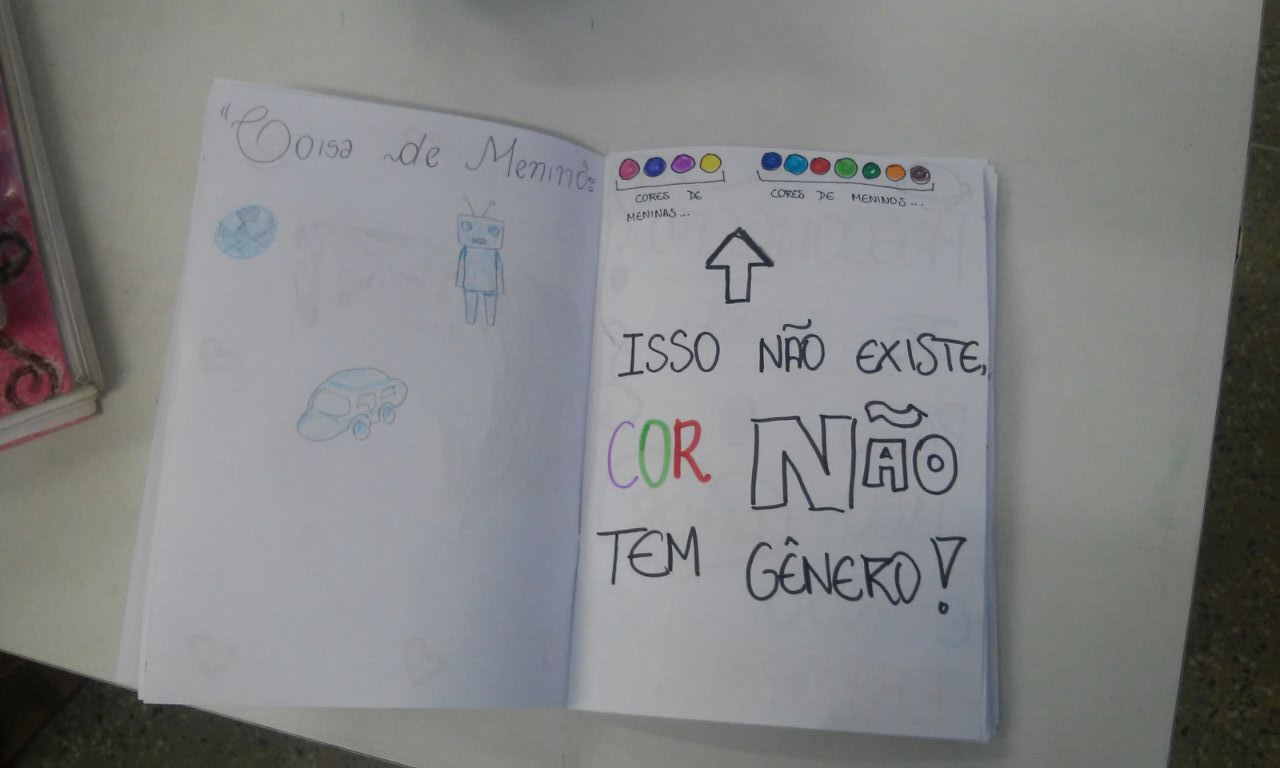 "Coisa de Menino:
CORES DE
MENINAS...
CORES DE MENINOS...
ISSO NÃO EXISTE,
COR NÃO
TEM GÊNERO!